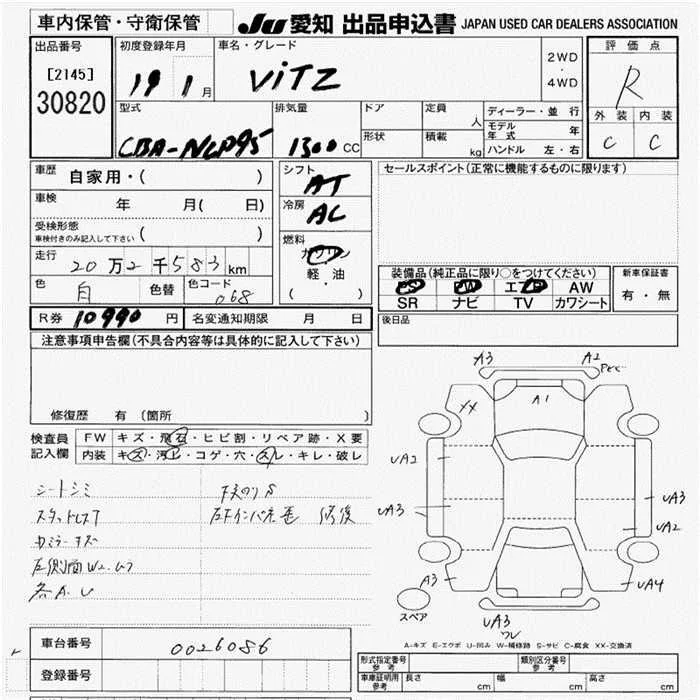 車内保管・守衛保管
JU 愛知 出品申込書 JAPAN USED CAR DEALERS ASSOCIATION
出品番号
[2145]
30820
初度登録年月
19 1 月
車名・グレード
VITZ
2WD
・
4WD
評価点
R
外装 内装
C C
型式
CBA-NCP95
排気量
1300 CC
ドア
形状
定員 人
積載 kg
ディーラー・並行
モデル年式 年
ハンドル 左・右
車歴
自家用・( )
車検 年 月( 日)
受検形態
車検付きのみ記入して下さい ( )
走行
20万2千583km
色 白 色替 色コード 068
シフト
AT
冷房
AC
燃料
ガソリン
軽・油
( ・ )
セールスポイント(正常に機能するものに限ります)
装備品(純正品に限り○をつけてください)
PS PW エアB AW
SR ナビ TV カワシート
新車保証書
有・無
R券 10990 円 名変通知期限 月 日
後日品
注意事項申告欄(不具合内容等は具体的に記入して下さい)
修復歴 有(箇所
検査員
記入欄
FW キズ・飛石・ヒビ割・リペア跡・X要
内装 キズ・汚レ・コゲ・穴・スレ・キレ・破レ
シートシミ
スタッドレスT
カミラーキズ
左側面W2.U3
各A.U
下廻りS
左Fインパネ歪 修復
A3 A2
A1
XX
UA2
UA3
UA3
UA2
A3
UA4
UA3
ワレ
スペア
A-キズ E-エクボ U-凹み W-補修跡 S-サビ C-腐食 XX-交換済
車台番号 0026086
登録番号
形式指定番号 参考
類別区分番号 参考
車庫証明用 参考 長さ cm 幅 cm 高さ cm